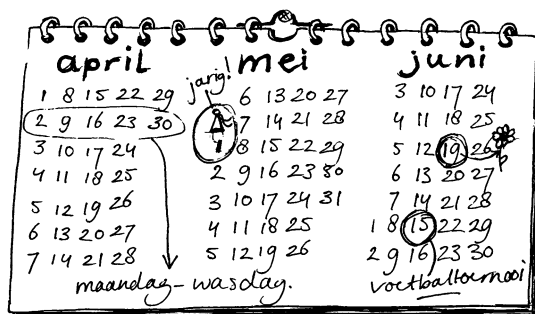 april
1 8 15 22 29
2 9 16 23 30
3 10 17 24
4 11 18 25
5 12 19 26
6 13 20 27
7 14 21 28
maandag-wasdag.
jarig!
mei
6 13 20 27
7 14 21 28
1 8 15 22 29
2 9 16 23 30
3 10 17 24 31
4 11 18 25
5 12 19 26
juni
3 10 17 24
4 11 18 25
5 12 19 26
6 13 20 27
7 14 21 28
1 8 15 22 29
2 9 16 23 30
voetbaltoernooi